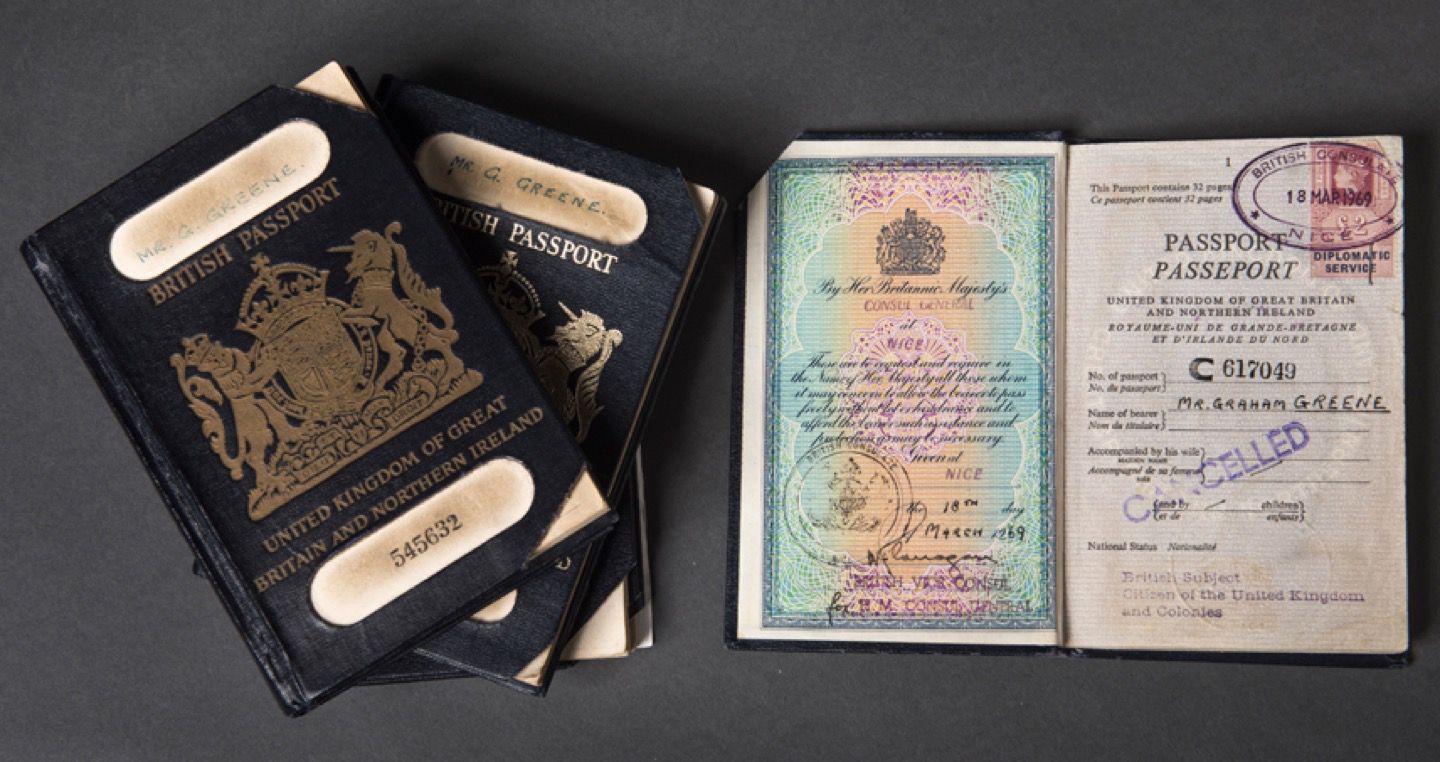 MR. G. GREENE.
BRITISH PASSPORT
UNITED KINGDOM OF GREAT
BRITAIN AND NORTHERN IRELAND
545632
MR. G. GREENE.
BRITISH PASSPORT
By Her Britannic Majesty's
CONSUL GENERAL
at
NICE
These are to request and require in
the Name of Her Majesty all those whom
it may concern to allow the bearer to pass
freely without let or hindrance and to
afford the bearer such assistance and
protection as may be necessary.
Given at
NICE
the 18TH day
MARCH 1969
BRITISH VICE CONSUL
for H.M. CONSUL GENERAL
BRITISH CONSULATE
1
This Passport contains 32 pages
Ce passeport contient 32 pages
BRITISH CONSULATE
18 MAR 1969
NICE
£2
DIPLOMATIC
SERVICE
PASSPORT
PASSEPORT
UNITED KINGDOM OF GREAT BRITAIN
AND NORTHERN IRELAND
ROYAUME-UNI DE GRANDE-BRETAGNE
ET D'IRLANDE DU NORD
No. of passport
No. du passeport
C 617049
Name of bearer
Nom du titulaire
MR. GRAHAM GREENE
Accompanied by his wife
MAIDEN NAME
Accompagné de sa femme
NÉE
CANCELLED
and by — children
et de enfants
National Status Nationalité
British Subject
Citizen of the United Kingdom
and Colonies